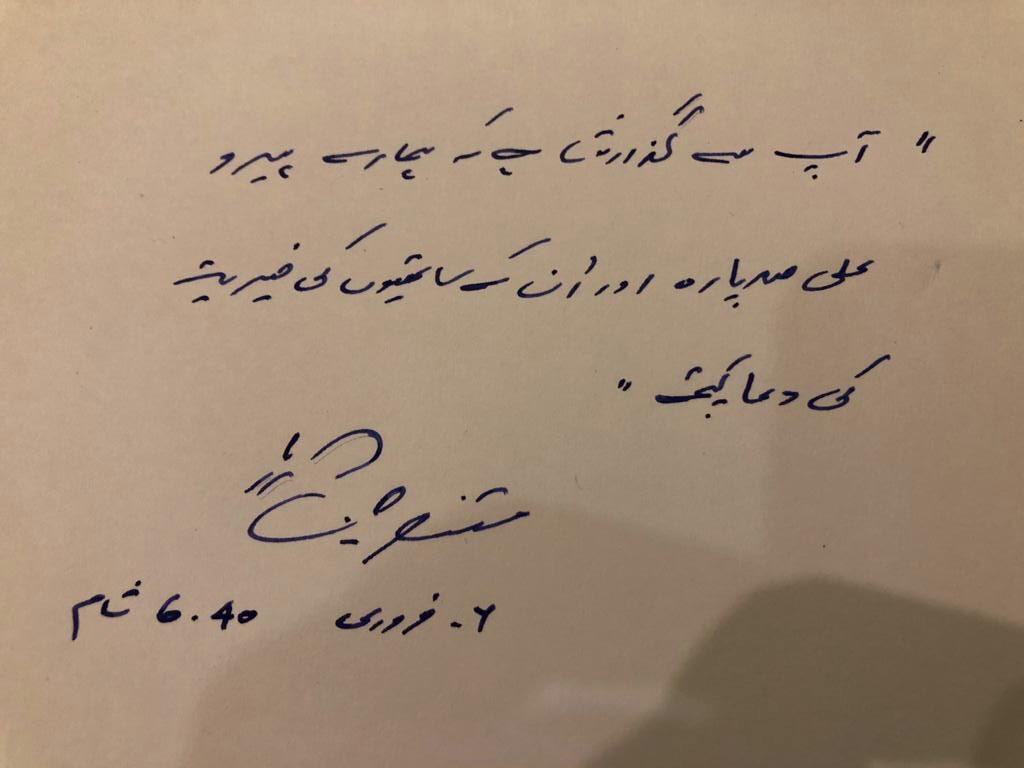 " آپ سے گذارش ہے کہ ہمارے ہیرو
علی صدپارہ اور اُن کے ساتھیوں کی خیریت
کی دعا کیجئے "
۶۔ فروری 6.40 شام